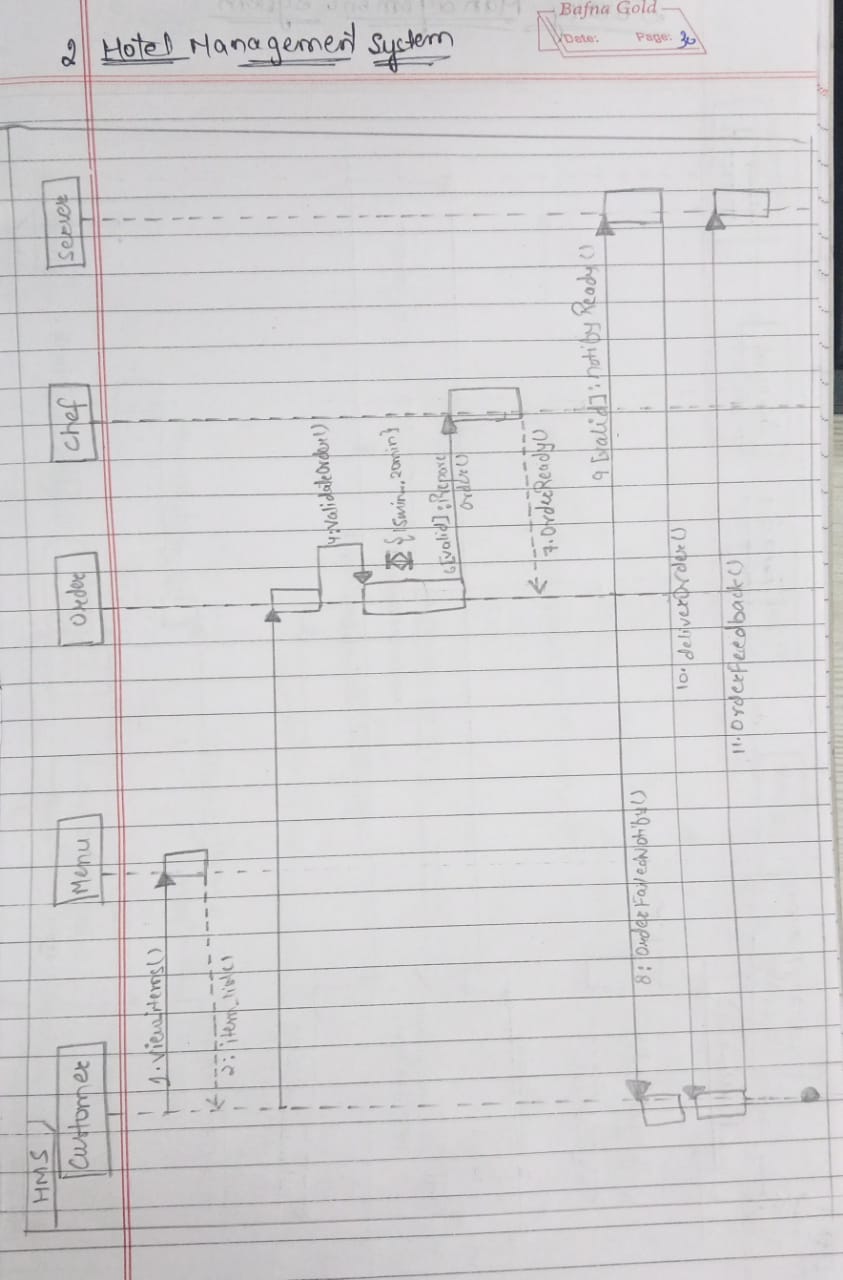 Bafna Gold
Date: Page: 30
2 Hotel Management System
HMS
Customer
Menu
Order
Chef
Server
1. View items()
2: item_list()
4: ValidateOrder()
{15min..20min}
6[valid]: Prepare
order()
7. OrderReady()
8: OrderFailedNotify()
9 [valid]: notifyReady()
10. deliverOrder()
11. Orderfeedback()